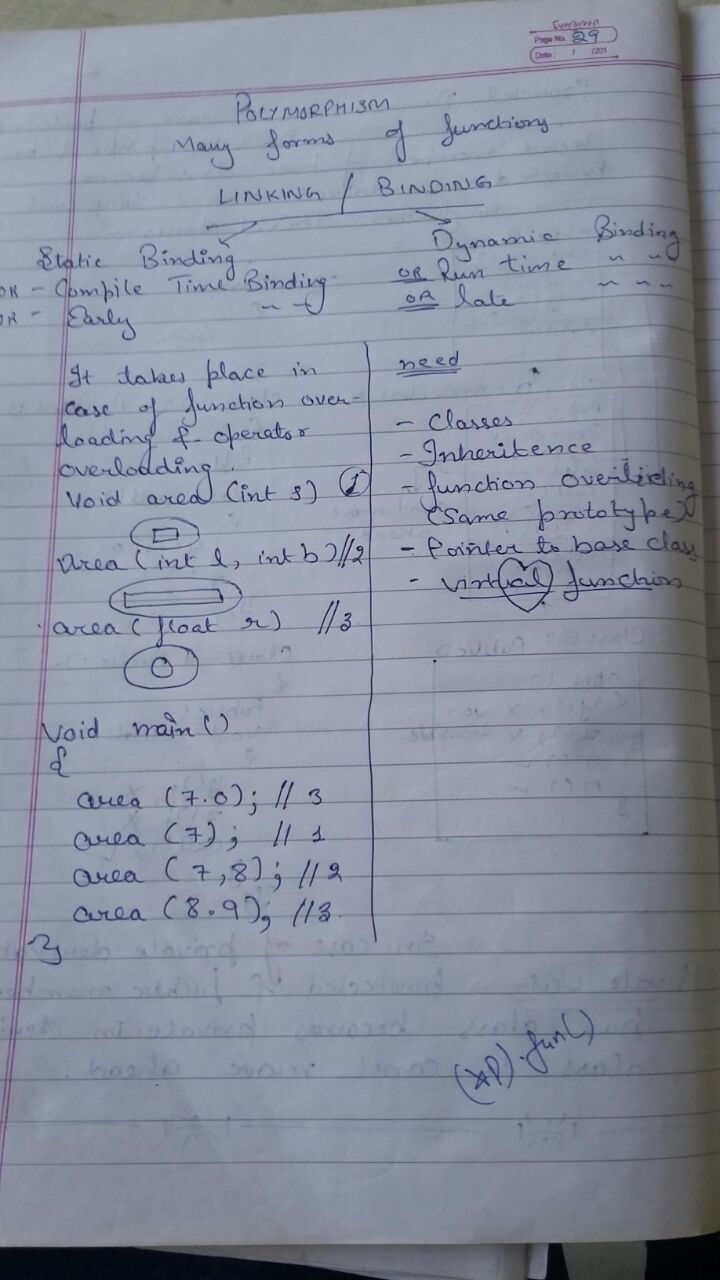 Page No. 29
Date: / /201
POLYMORPHISM
Many forms of functions
LINKING / BINDING
Static Binding
OR - Compile Time Binding
OR - Early " "
Dynamic Binding
OR Run time " "
OR late " " "
It takes place in
case of function over-
loading & operator
overloading.
Void area (int s) 1
area (int l, int b) //2
area (float r) //3
Void main()
{
area (7.0); // 3
area (7); // 1
area (7,8); //2
area (8.9); //3
}
need
- Classes
- Inheritence
- function overriding
(Same prototype)
- Pointer to base class
- virtual function
(*P).fun()